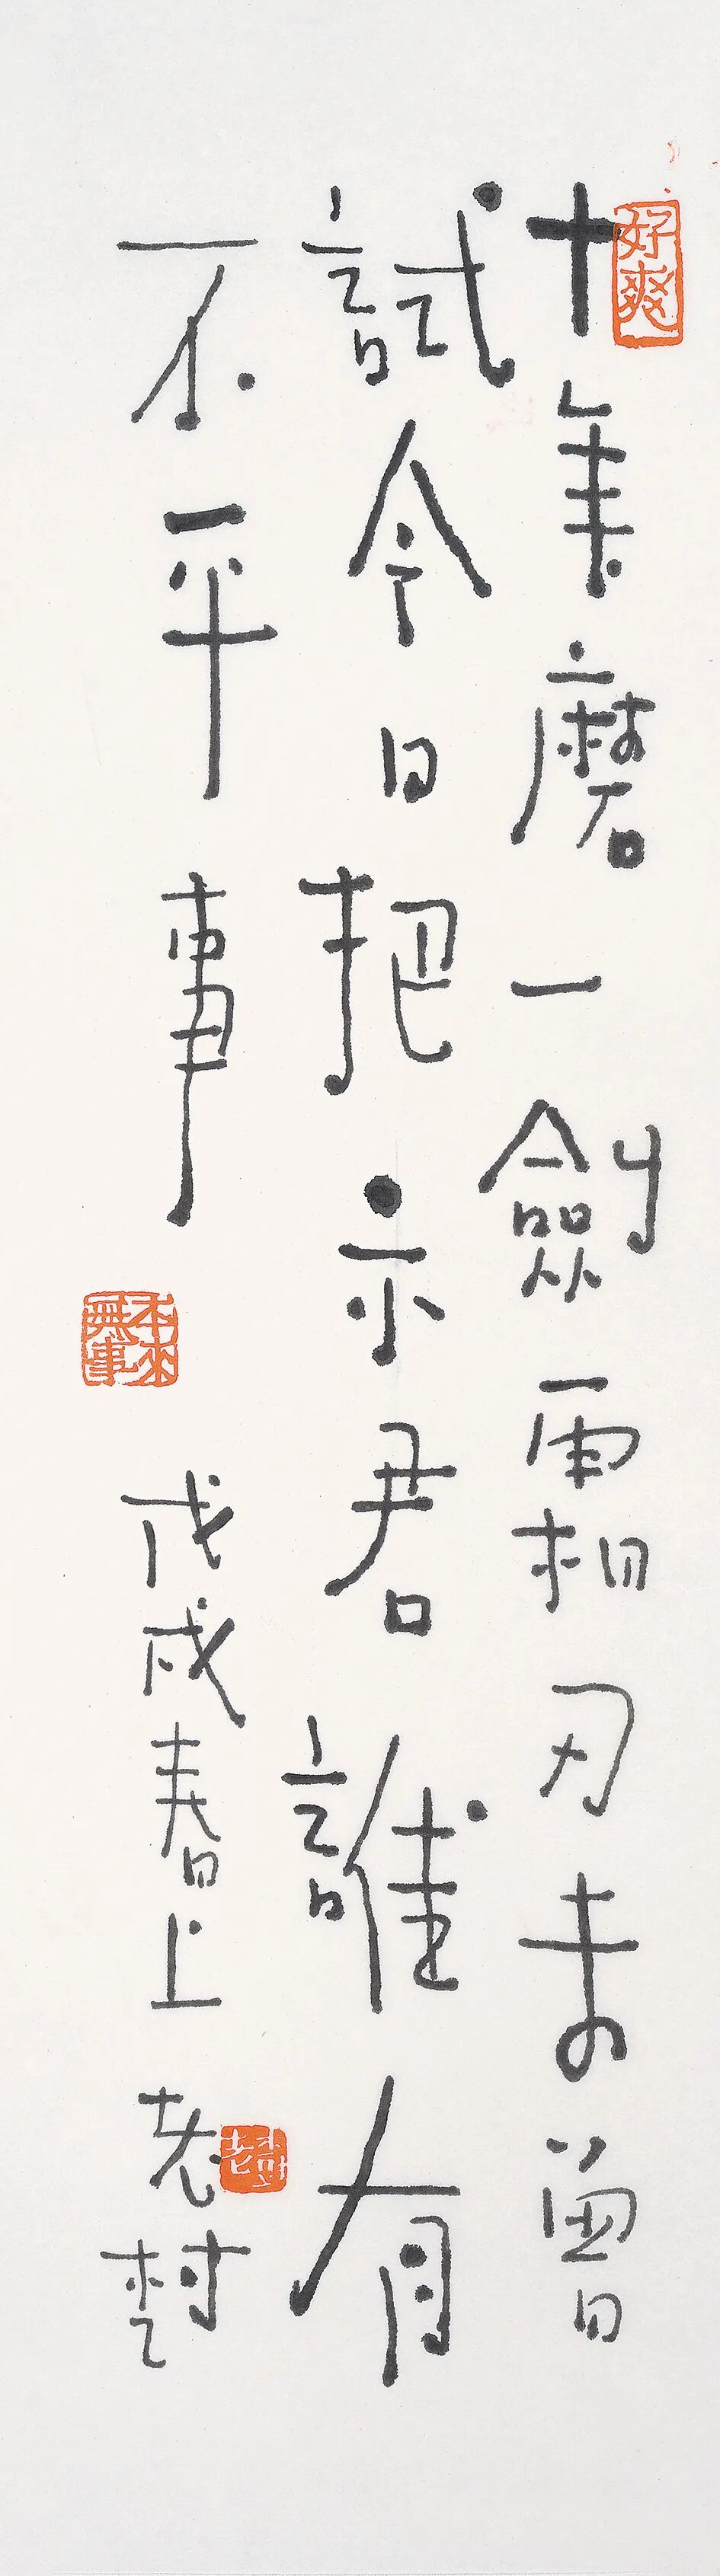 十年磨一劍霜刃未曾
試今日把示君誰有
不平事
戊戌春上老村
好爽
本來無事
老村